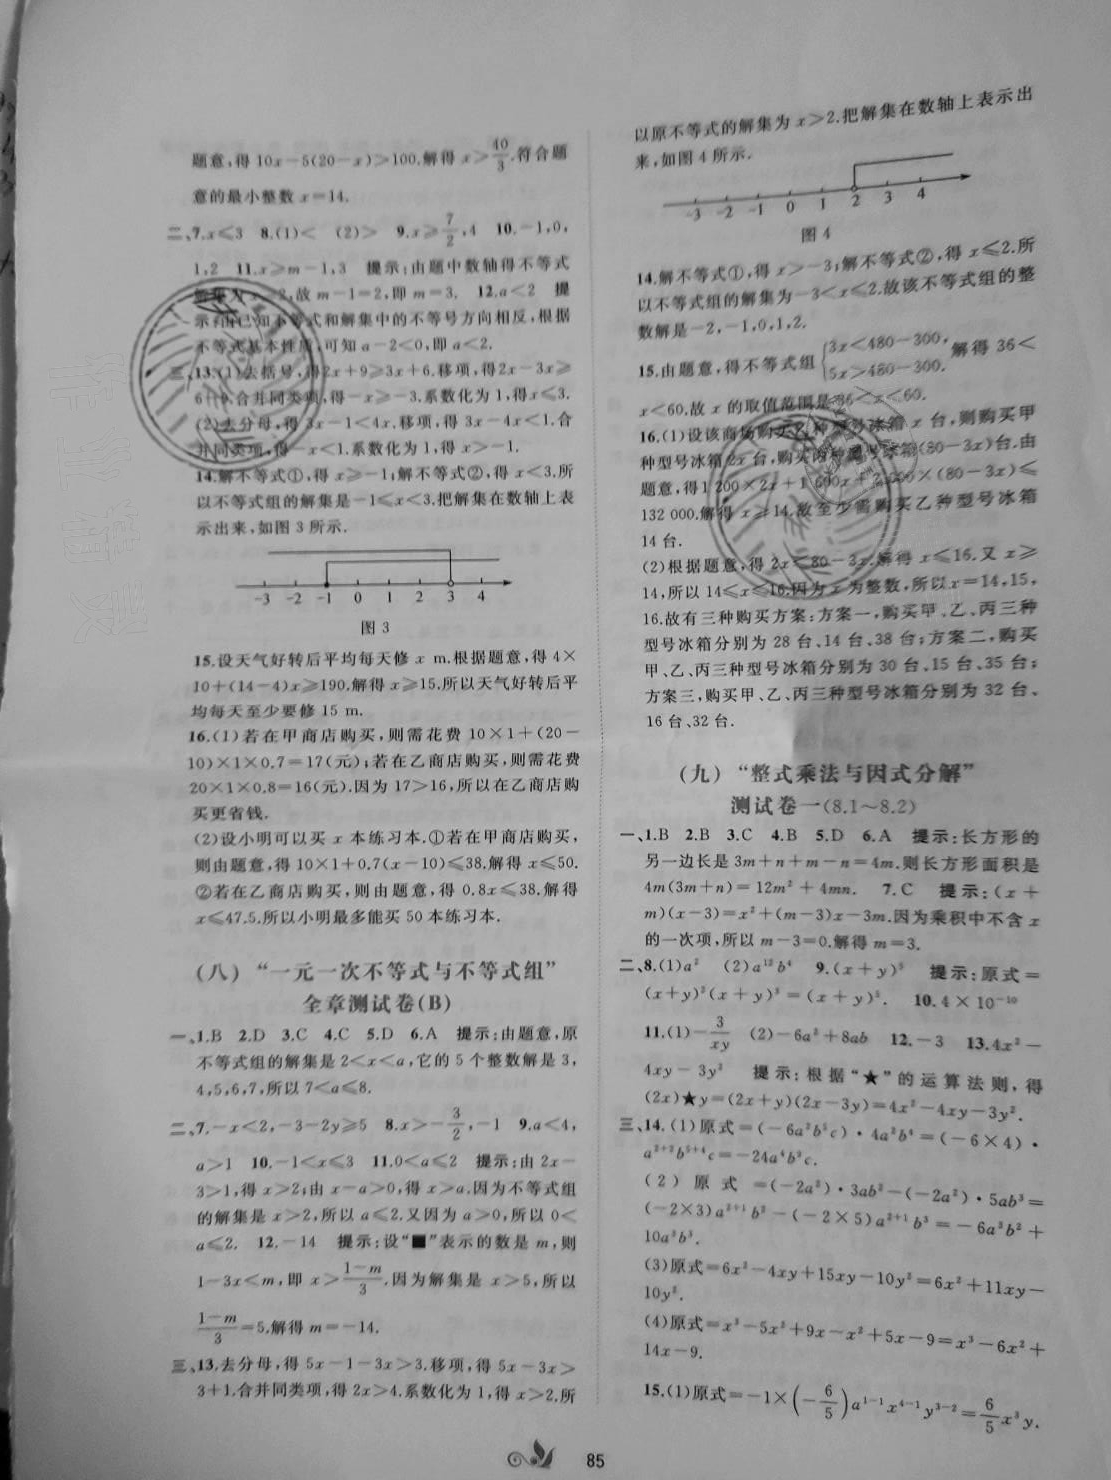 题意,得 10x-5(20-x)>100.解得 x>40/3.符合题
意的最小整数 x=14.
二、7.x⩽3 8.(1)< (2)> 9.x⩾7/2,4 10.-1,0,
1,2 11.x⩾m-1,3 提示:由题中数轴得不等式
解集为 x⩾2,故 m-1=2,即 m=3. 12.a<2 提
示:由已知不等式和解集中的不等号方向相反,根据
不等式基本性质,可知 a-2<0,即 a<2.
三、13.(1)去括号,得2x+9⩾3x+6.移项,得2x-3x⩾
6-9.合并同类项,得-x⩾-3.系数化为 1,得x⩽3.
(2)去分母,得 3x-1<4x.移项,得 3x-4x<1.合
并同类项,得-x<1.系数化为 1,得 x>-1.
14.解不等式①,得 x⩾-1;解不等式②,得 x<3.所
以不等式组的解集是-1⩽x<3.把解集在数轴上表
示出来,如图 3 所示.
-3 -2 -1 0 1 2 3 4
图 3
15.设天气好转后平均每天修 x m.根据题意,得 4×
10+(14-4)x⩾190.解得 x⩾15.所以天气好转后平
均每天至少要修 15 m.
16.(1)若在甲商店购买,则需花费 10×1+(20-
10)×1×0.7=17(元);若在乙商店购买,则需花费
20×1×0.8=16(元).因为 17>16,所以在乙商店购
买更省钱.
(2)设小明可以买 x 本练习本.①若在甲商店购买,
则由题意,得 10×1+0.7(x-10)⩽38.解得 x⩽50.
②若在乙商店购买,则由题意,得 0.8x⩽38.解得
x⩽47.5.所以小明最多能买 50 本练习本.
(八)“一元一次不等式与不等式组”
全章测试卷(B)
一、1.B 2.D 3.C 4.C 5.D 6.A 提示:由题意,原
不等式组的解集是 2<x<a,它的 5 个整数解是 3,
4,5,6,7,所以 7<a⩽8.
二、7.-x<2,-3-2y⩾5 8.x>-3/2,-1 9.a<4,
a>1 10.-1<x⩽3 11.0<a⩽2 提示:由 2x-
3>1,得 x>2;由 x-a>0,得 x>a.因为不等式组
的解集是 x>2,所以 a⩽2.又因为 a>0,所以 0<
a⩽2. 12.-14 提示:设“■”表示的数是 m,则
1-3x<m,即 x>(1-m)/3.因为解集是 x>5,所以
(1-m)/3=5.解得 m=-14.
三、13.去分母,得 5x-1-3x>3.移项,得 5x-3x>
3+1.合并同类项,得 2x>4.系数化为 1,得 x>2.所
以原不等式的解集为 x>2.把解集在数轴上表示出
来,如图 4 所示.
-3 -2 -1 0 1 2 3 4
图 4
14.解不等式①,得 x>-3;解不等式②,得 x⩽2.所
以不等式组的解集为-3<x⩽2.故该不等式组的整
数解是-2,-1,0,1,2.
15.由题意,得不等式组{3x<480-300, 5x>480-300. 解得 36<
x<60.故 x 的取值范围是 36<x<60.
16.(1)设该商场购买乙种型号冰箱 x 台,则购买甲
种型号冰箱 2x 台,购买丙种型号冰箱(80-3x)台.由
题意,得1 200×2x+1 600x+2 000×(80-3x)⩽
132 000.解得 x⩾14.故至少需购买乙种型号冰箱
14 台.
(2)根据题意,得 2x⩽80-3x.解得 x⩽16.又 x⩾
14,所以 14⩽x⩽16.因为 x 为整数,所以x=14,15,
16.故有三种购买方案:方案一,购买甲、乙、丙三种
型号冰箱分别为 28 台、14 台、38 台;方案二,购买
甲、乙、丙三种型号冰箱分别为 30 台、15 台、35 台;
方案三,购买甲、乙、丙三种型号冰箱分别为 32 台、
16 台、32 台.
(九)“整式乘法与因式分解”
测试卷一(8.1~8.2)
一、1.B 2.B 3.C 4.B 5.D 6.A 提示:长方形的
另一边长是 3m+n+m-n=4m.则长方形面积是
4m(3m+n)=12m²+4mn. 7.C 提示:(x+
m)(x-3)=x²+(m-3)x-3m.因为乘积中不含 x
的一次项,所以 m-3=0.解得 m=3.
二、8.(1)a² (2)a¹²b⁴ 9.(x+y)⁵ 提示:原式=
(x+y)²(x+y)³=(x+y)⁵. 10.4×10⁻¹⁰
11.(1)-3/xy (2)-6a²+8ab 12.-3 13.4x²-
4xy-3y² 提示:根据“★”的运算法则,得
(2x)★y=(2x+y)(2x-3y)=4x²-4xy-3y².
三、14.(1)原式=(-6a²b⁵c)·4a²b⁴=(-6×4)·
a²⁺²b⁵⁺⁴c=-24a⁴b⁹c.
(2)原式=(-2a²)·3ab²-(-2a²)·5ab³=
(-2×3)a²⁺¹b²-(-2×5)a²⁺¹b³=-6a³b²+
10a³b³.
(3)原式=6x²-4xy+15xy-10y²=6x²+11xy-
10y².
(4)原式=x³-5x²+9x-x²+5x-9=x³-6x²+
14x-9.
15.(1)原式=-1×(-6/5)a¹⁻¹x⁴⁻¹y³⁻²=6/5x³y.
85